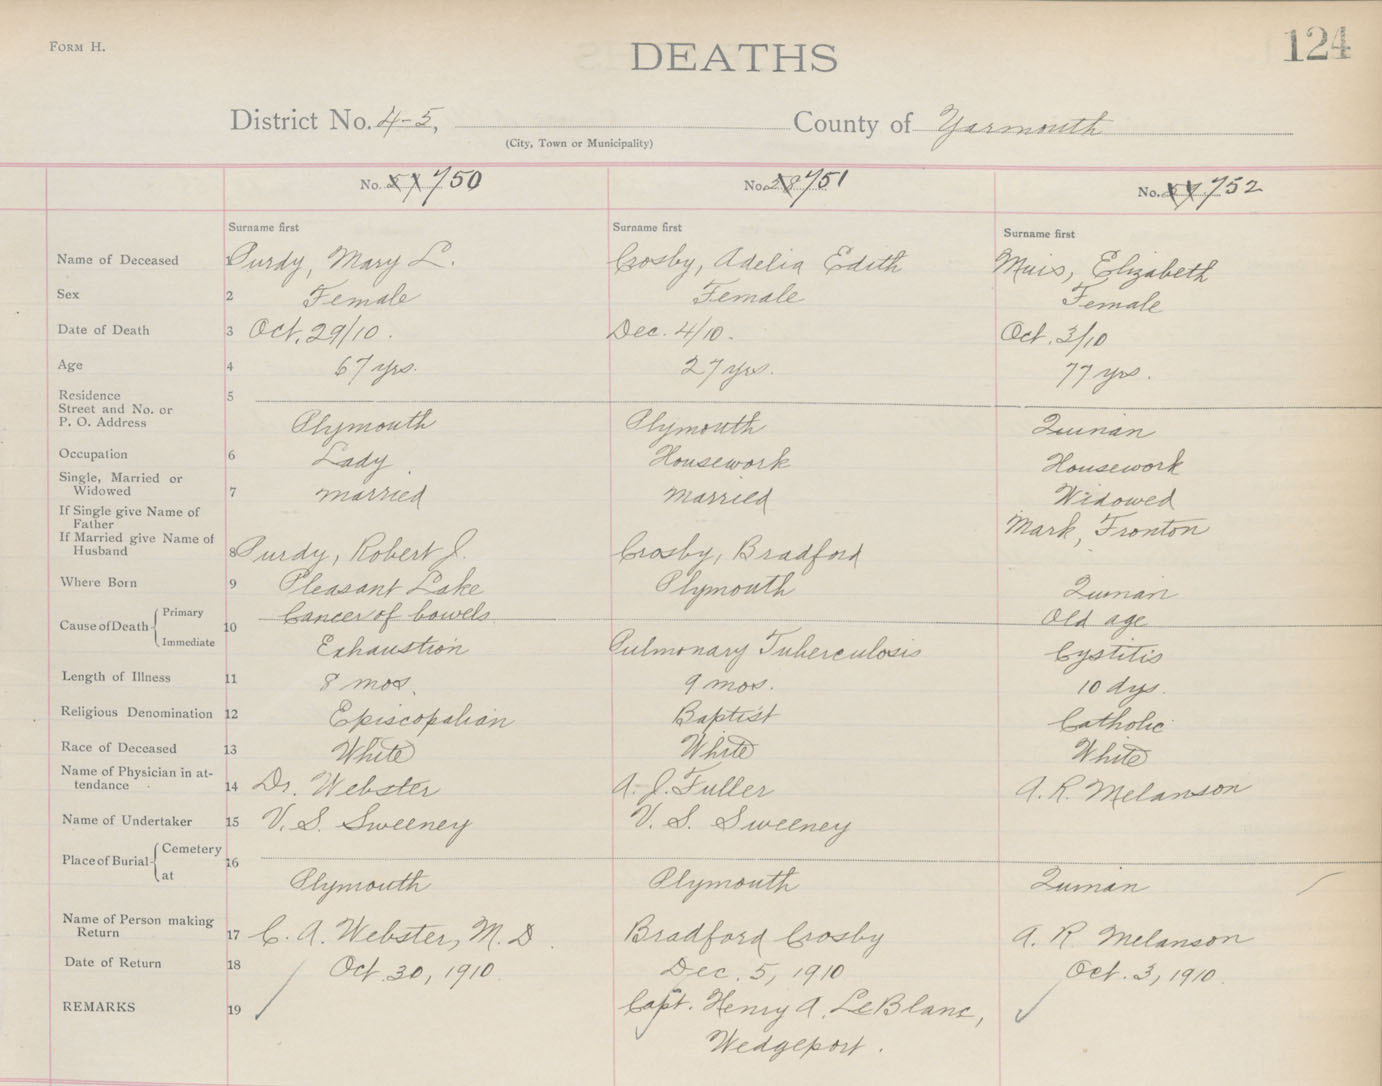 FORM H.
DEATHS
124
District No. 4-5, County of Yarmouth
(City, Town or Municipality)
No. 750 No. 28 751 No. 752
Surname first Surname first Surname first
Name of Deceased 1 Purdy, Mary L. Crosby, Adelia Edith Muis, Elizabeth
Sex 2 Female Female Female
Date of Death 3 Oct. 29/10. Dec. 4/10. Oct. 3/10
Age 4 67 yrs. 27 yrs. 77 yrs.
Residence 5
Street and No. or
P. O. Address Plymouth Plymouth Quinan
Occupation 6 Lady. Housework Housework
Single, Married or
Widowed 7 married married Widowed
If Single give Name of
Father Mark, Fronton
If Married give Name of
Husband 8 Purdy, Robert J. Crosby, Bradford
Where Born 9 Pleasant Lake Plymouth Quinan
Cause of Death Primary 10 Cancer of bowels Old age
Immediate Exhaustion Pulmonary Tuberculosis Cystitis
Length of Illness 11 8 mos. 9 mos. 10 dys.
Religious Denomination 12 Episcopalian Baptist Catholic
Race of Deceased 13 White White White
Name of Physician in at-
tendance 14 Dr. Webster A. J. Fuller A. R. Melanson
Name of Undertaker 15 V. S. Sweeney V. S. Sweeney
Place of Burial Cemetery 16
at Plymouth Plymouth Quinan
Name of Person making
Return 17 C. A. Webster, M. D. Bradford Crosby A. R. Melanson
Date of Return 18 Oct. 30, 1910. Dec. 5, 1910 Oct. 3, 1910.
REMARKS 19 Capt. Henry A. LeBlanc,
Wedgeport.